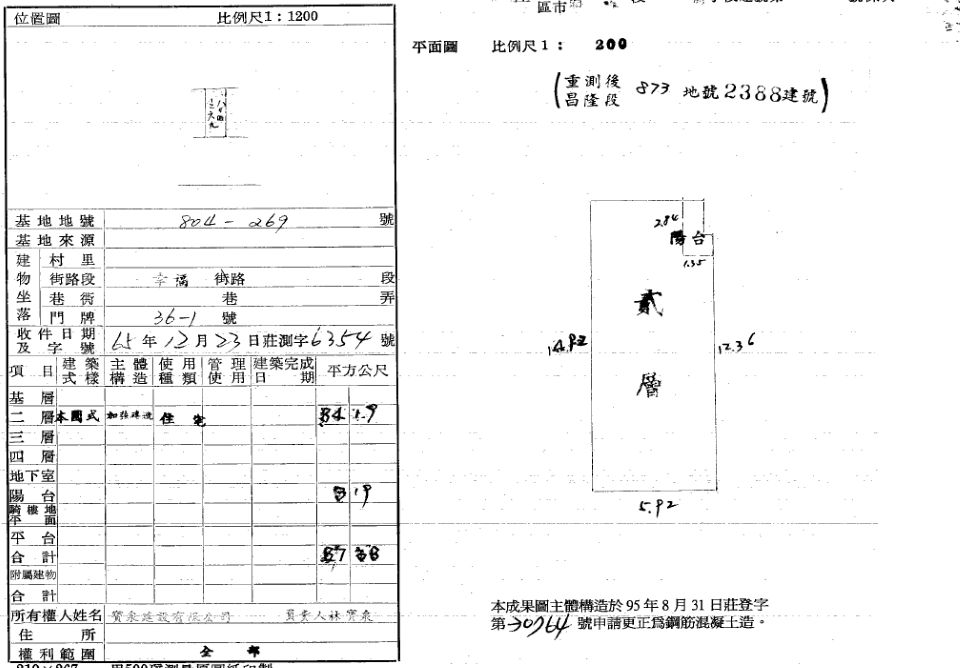 位置圖 比例尺1：1200
基地地號 804－269 號
基地來源
建物坐落 村里
街路段 幸福 街路 段
巷衖 巷 弄
門牌 36-1 號
收件日期及字號 65年12月23日莊測字6354號
項目 建築式樣 主體構造 使用種類 管理使用 建築完成日期 平方公尺
基層
二層 本國式 加強磚造 住宅
三層
四層
地下室
陽台
騎樓地平面
平台
合計
附屬建物
合計
所有權人姓名
住所
權利範圍 全部
區市
平面圖 比例尺1： 200
(重測後昌隆段 873 地號2388建號)
2.84
陽台
1.35
貳
層
14.92
12.36
5.92
本成果圖主體構造於95年8月31日莊登字
第30764號申請更正為鋼筋混凝土造。